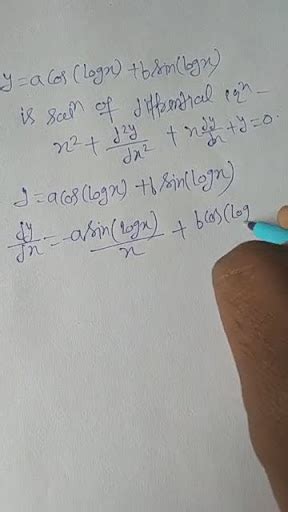 y = a cos(logx) + b sin(logx)
is soln of differential eqn -
x² + d²y/dx² + x dy/dx + y = 0.
y = a cos(logx) + b sin(logx)
dy/dx = -a sin(logx)/x + b cos(log